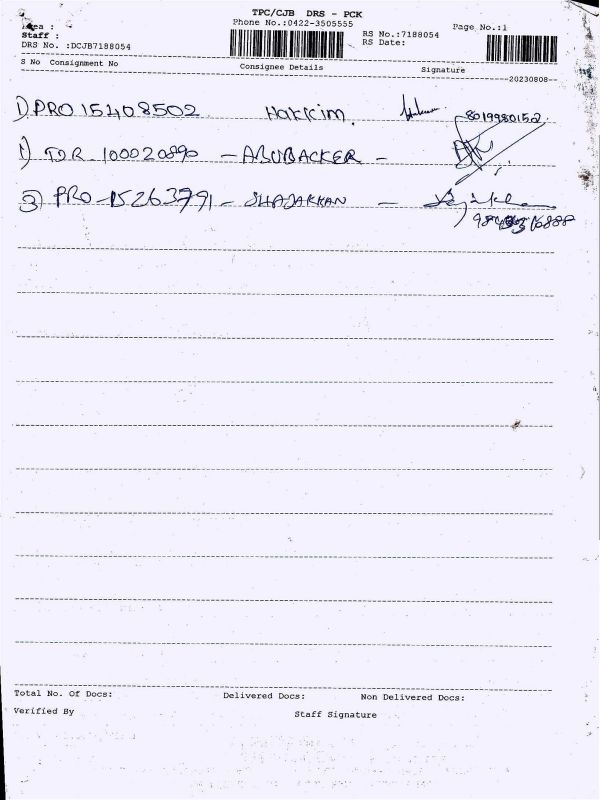 TPC/CJB DRS - PCK
Area :
Phone No.:0422-3505555
Page No.:1
Staff :
RS No.:7188054
DRS No. :DCJB7188054
RS Date:
S No Consignment No Consignee Details Signature
--20230808--
1) PRO 15408502 Hakkim 8019980152
1) TDR-100020890 - ABUBACKER -
3) PRO-15263791 - SHAJAKKAN -
Total No. Of Docs: Delivered Docs: Non Delivered Docs:
Verified By Staff Signature